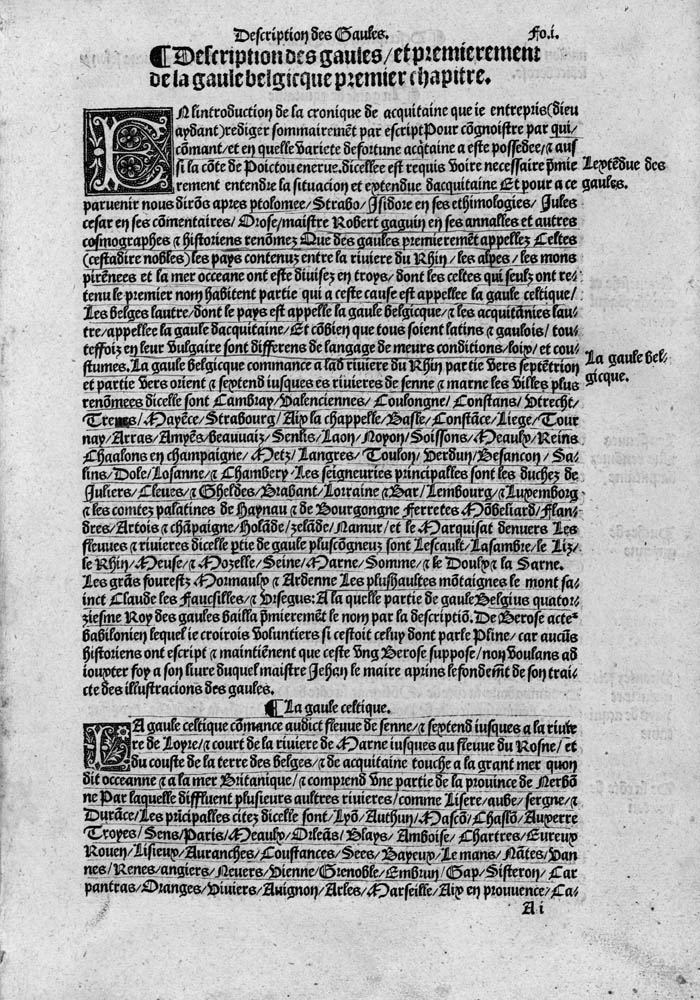 Description des Gaules. Fo.i.
¶Description des gaules/et premierement
de la gaule belgicque premier chapitre.
ENlintroduction de la cronique de acquitaine que ie entrepris(dieu
aydant)rediger sommairemēt par escript Pour cōgnoistre par qui/
cōmant/et en quelle variete de fortune acq̄taine a este possedee/⁊ aus
si la cōte de Poictou enerue.dicellee est requis voire necessaire p̄mie
rement entendre la situacion et extendue dacquitaine Et pour a ce
Lextēdue des
gaules.
paruenir nous dirōs apres ptolomee/Strabo/Isidore en ses ethimologies/Jules
cesar en ses cōmentaires/Orose/maistre Robert gaguin en ses annalles et autres
cosmographes ⁊ historiens renōmez Que des gaules premieremēt appellez Celtes
(cestadire nobles)les pays contenuz entre la riuiere du Rhin/les alpes/les mons
pirēnees et la mer occeane ont este diuisez en troys/dont les celtes qui seulz ont re/
tenu le premier nom habitent partie qui a ceste cause est appellee la gaule celtique/
Les belges lautre/dont le pays est appelle la gaule belgicque/⁊ les acquitānies lau/
tre/appellee la gaule dacquitaine/Et cōbien que tous soient latins ⁊ gaulois/tou/
teffoiz en leur vulgaire sont differens de langage de meurs conditions/loix/et cou/
stumes.La gaule belgicque commance a lad riuiere du Rhin partie vers septētrion
et partie vers orient ⁊ sextend iusques es riuieres de senne ⁊ marne les villes plus
La gaule bel/
gicque.
renōmees dicelle sont Cambray/Valenciennes/Coulongne/Constans/Vtrecht/
Treues/Mayēce/Strabourg/Aix la chappelle/Basle/Constāce/Liege/Tour
nay/Arras/Amyēs/beauuaiz/Senlis/Laon/Noyon/Soissons/Meaulx/Reins
Chaalons en champaigne/Metz/Langres/Toulon/Verdun/Besancon/Sa/
lins/Dole/Losanne/⁊ Chambery/Les seigneuries principalles sont les duchez de
Juliers/Cleues/⁊ Gheldes/Brabant/Lorraine ⁊ Bar/Lembourg/⁊ Luxemborg
⁊ les comtez palatines de Haynau ⁊ de Bourgongne Ferretes Mōbeliard/Flan/
dres/Artois ⁊ chāpaigne/Holāde/zelāde/Namur/et le Marquisat denuers Les
fleuues ⁊ riuieres dicelle p̄tie de gaule pluscōgneuz sont Lescault/Lasambre/le Liz/
le Rhin/Meuse/⁊ Mozelle/Seine/Marne/Somme/⁊ le Doulx⁊ la Sarne.
Les grās fourestz Mormaulx ⁊ Ardenne Les plushaultes mōtaignes le mont sa/
inct Claude les Faucsilles/⁊ Vrsegus:A la quelle partie de gaule Belgius quator/
ziesme Roy des gaules bailla p̄mierement le nom par la descriptiō.De Berose acte
babilonien lequel ie croirois voluntiers si cestoit celuy dont parle Pline/car aucūs
historiens ont escript ⁊ maintiēnent que ceste vng Berose suppose/non voulans ad
iouxter foy a son liure duquel maistre Jehan le maire aprins le fondem̄t de son trai/
cte des illustracions des gaules.
¶La gaule celtique.
LA gaule celtique cōmance audict fleuue de senne/⁊ sextend iusques a la riuie
re de Loyre/⁊ court de la riuiere de Marne iusques au fleuue du Rosne/et
du couste de la terre des belges/⁊ de acquitaine touche a la grant mer quon
dit occeanne ⁊ a la mer Britanique/⁊ comprend vne partie de la prouince de Nerbō
ne Par laquelle diffluent plusieurs aultres riuieres/comme Lisere/aube/sergne/⁊
Durāce/Les p̄icipalles citez dicelle sont/Lyō/Authun/Mascō/Chaslō/Auxerre
Troyes/Sens/Paris/Meaulx/Orleās/Blays/Amboise/Chartres/Eureux
Rouen/Lisieux/Auranches/Coustances/Sees/Bayeux/Le mans/Nātes/Van
nes/Renes/angiers/Neuers/Vienne/Grenoble/Embrun/Gap/Sisteron/Car
pantras/Oranges/Viuiers/Auignon/Arles/Marseille/Aix en prouuence/Ca/
A i